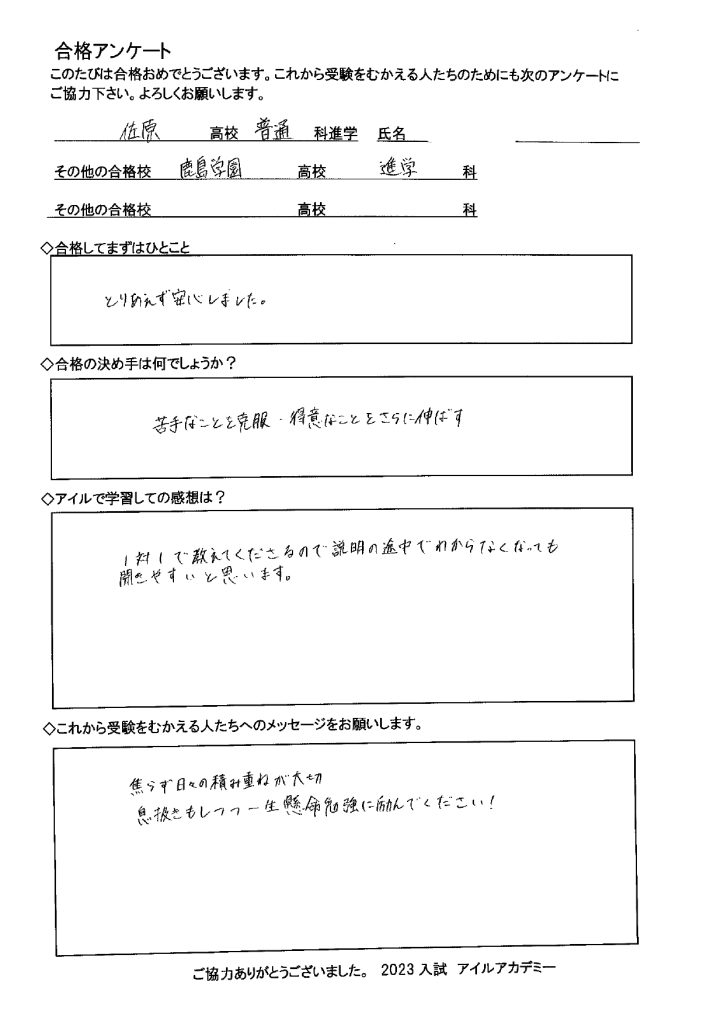 合格アンケート
このたびは合格おめでとうございます。これから受験をむかえる人たちのためにも次のアンケートに
ご協力下さい。よろしくお願いします。
佐原 高校 普通 科進学 氏名
その他の合格校 鹿島学園 高校 進学 科
その他の合格校 高校 科
◇合格してまずはひとこと
とりあえず安心しました。
◇合格の決め手は何でしょうか？
苦手なことを克服・得意なことをさらに伸ばす
◇アイルで学習しての感想は？
1対1で教えてくださるので説明の途中でわからなくなっても
聞きやすいと思います。
◇これから受験をむかえる人たちへのメッセージをお願いします。
焦らず日々の積み重ねが大切
息抜きもしつつ一生懸命勉強に励んでください！
ご協力ありがとうございました。 2023入試 アイルアカデミー